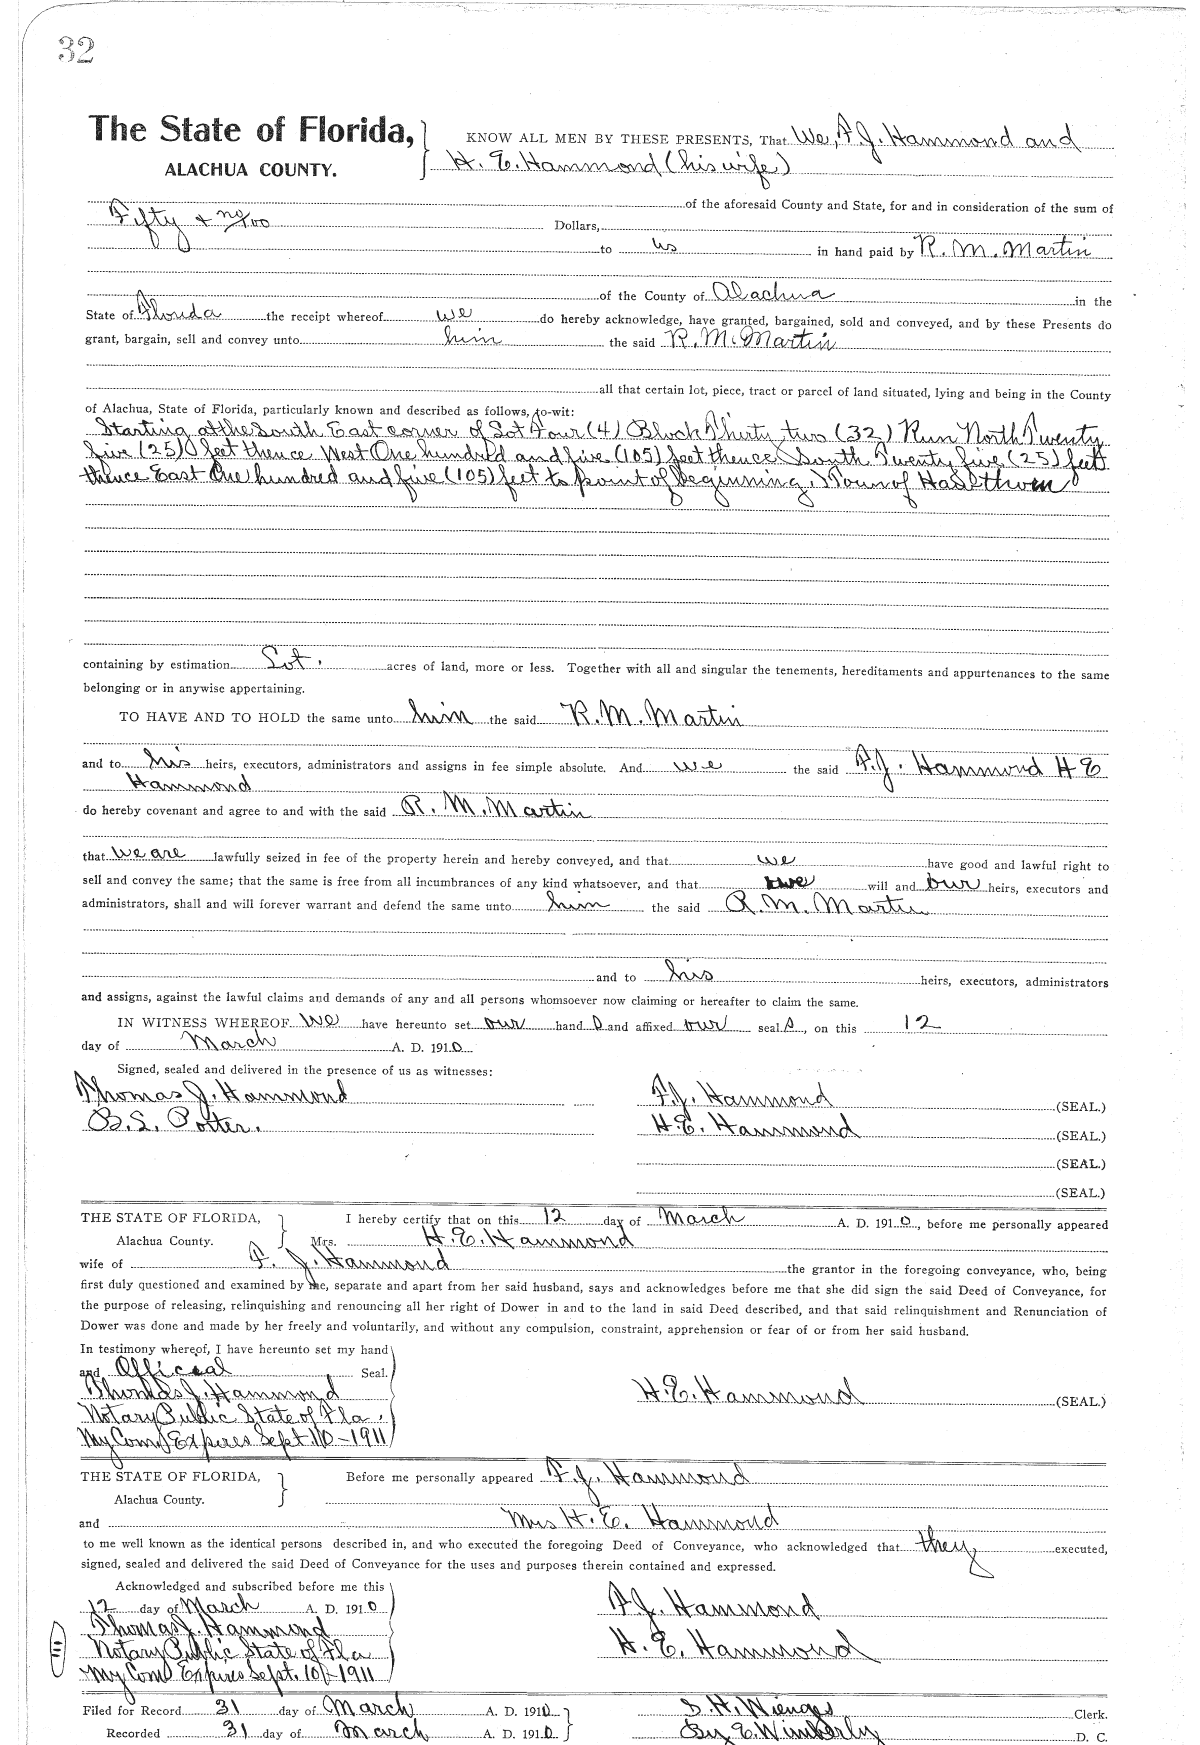 32
The State of Florida, KNOW ALL MEN BY THESE PRESENTS, That We, F.J. Hammond and
ALACHUA COUNTY. H. E. Hammond (his wife)
of the aforesaid County and State, for and in consideration of the sum of
Fifty + no/100 Dollars,
to us in hand paid by R. M. Martin
of the County of Alachua in the
State of Florida the receipt whereof we do hereby acknowledge, have granted, bargained, sold and conveyed, and by these Presents do
grant, bargain, sell and convey unto him the said R. M. Martin
all that certain lot, piece, tract or parcel of land situated, lying and being in the County
of Alachua, State of Florida, particularly known and described as follows, to-wit:
Starting at the South East corner of Lot Four (4) Block Thirty two (32) Run North Twenty
five (25) feet thence West One hundred and five (105) feet thence South Twenty five (25) feet
thence East One hundred and five (105) feet to point of beginning, Town of Hawthorn
containing by estimation Lot. acres of land, more or less. Together with all and singular the tenements, hereditaments and appurtenances to the same
belonging or in anywise appertaining.
TO HAVE AND TO HOLD the same unto him the said R. M. Martin
and to his heirs, executors, administrators and assigns in fee simple absolute. And we the said F.J. Hammond H E
Hammond
do hereby covenant and agree to and with the said R. M. Martin
that we are lawfully seized in fee of the property herein and hereby conveyed, and that we have good and lawful right to
sell and convey the same; that the same is free from all incumbrances of any kind whatsoever, and that we will and our heirs, executors and
administrators, shall and will forever warrant and defend the same unto him the said R. M. Martin
and to his heirs, executors, administrators
and assigns, against the lawful claims and demands of any and all persons whomsoever now claiming or hereafter to claim the same.
IN WITNESS WHEREOF We have hereunto set our hand s and affixed our seal s, on this 12
day of March A. D. 1910
Signed, sealed and delivered in the presence of us as witnesses:
Thomas J. Hammond F.J. Hammond (SEAL.)
B.S. Potter. H.E. Hammond (SEAL.)
(SEAL.)
(SEAL.)
THE STATE OF FLORIDA, I hereby certify that on this 12 day of March A. D. 1910, before me personally appeared
Alachua County. Mrs. H.E. Hammond
wife of F. J. Hammond the grantor in the foregoing conveyance, who, being
first duly questioned and examined by me, separate and apart from her said husband, says and acknowledges before me that she did sign the said Deed of Conveyance, for
the purpose of releasing, relinquishing and renouncing all her right of Dower in and to the land in said Deed described, and that said relinquishment and Renunciation of
Dower was done and made by her freely and voluntarily, and without any compulsion, constraint, apprehension or fear of or from her said husband.
In testimony whereof, I have hereunto set my hand
and Official Seal.
Thomas J. Hammond H.E. Hammond (SEAL.)
Notary Public State of Fla.
My Com Expires Sept. 10-1911
THE STATE OF FLORIDA, Before me personally appeared F.J. Hammond
Alachua County.
and Mrs H. E. Hammond
to me well known as the identical persons described in, and who executed the foregoing Deed of Conveyance, who acknowledged that they executed,
signed, sealed and delivered the said Deed of Conveyance for the uses and purposes therein contained and expressed.
Acknowledged and subscribed before me this
12 day of March A. D. 1910 F.J. Hammond
Thomas J. Hammond
Notary Public State of Fla H. E. Hammond
My Com Expires Sept. 10-1911
Filed for Record 31 day of March A. D. 1910 S. H. Wienges Clerk.
Recorded 31 day of March A. D. 1910 By E. Wimberly D. C.